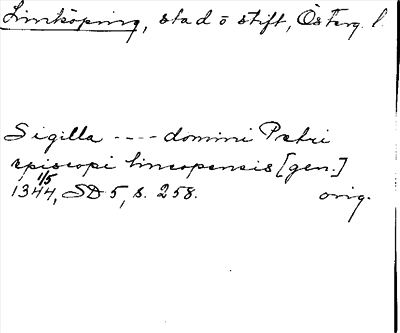 Linköping, stad o stift, Österg. l.
Sigilla ---- domini Petri
episcopi lincopensis [gen.]
1/5
1344, SD 5, s. 258. orig.